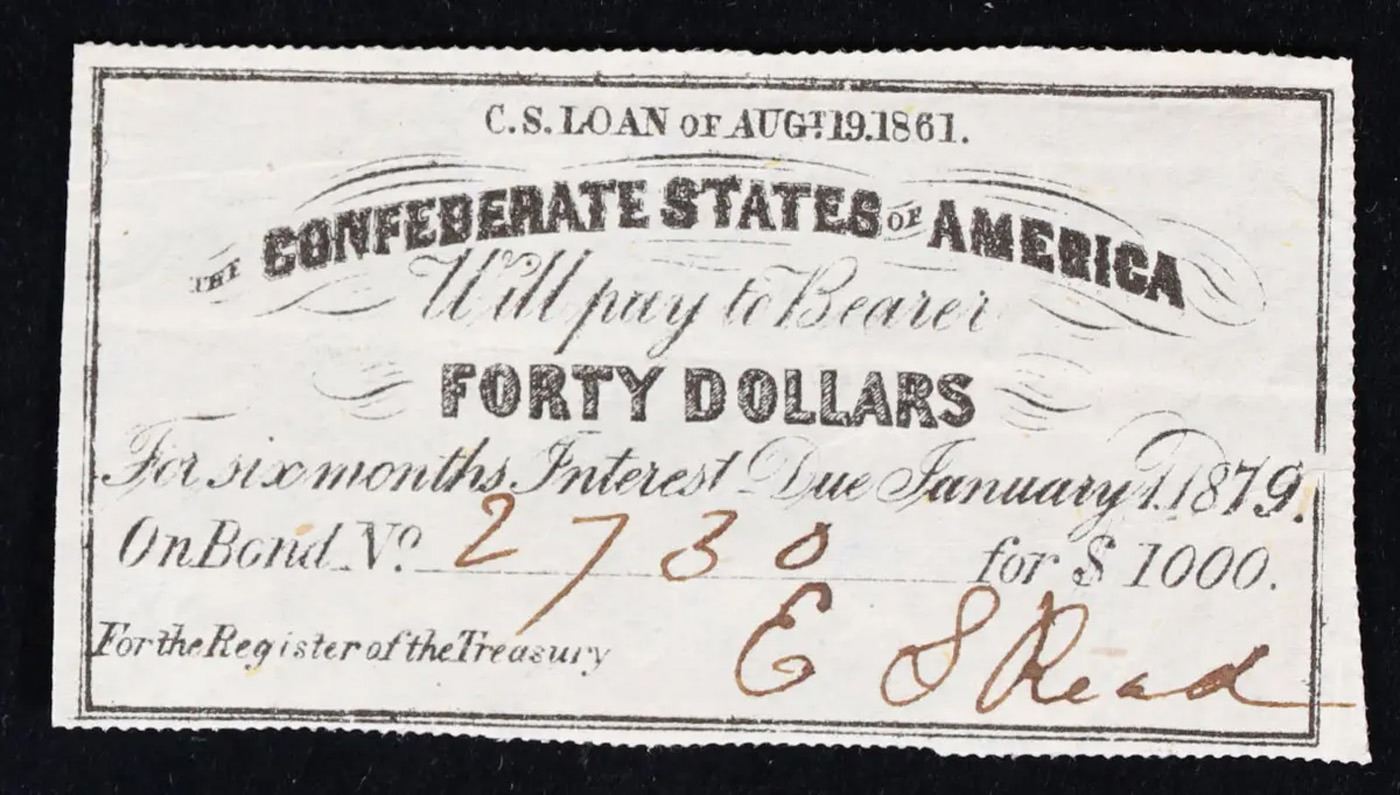 C.S. LOAN OF AUGT 19.1861.
THE CONFEDERATE STATES OF AMERICA
Will pay to Bearer
FORTY DOLLARS
For six months Interest Due January 1. 1879.
On Bond No. 2730 for $ 1000.
For the Register of the Treasury E S Read